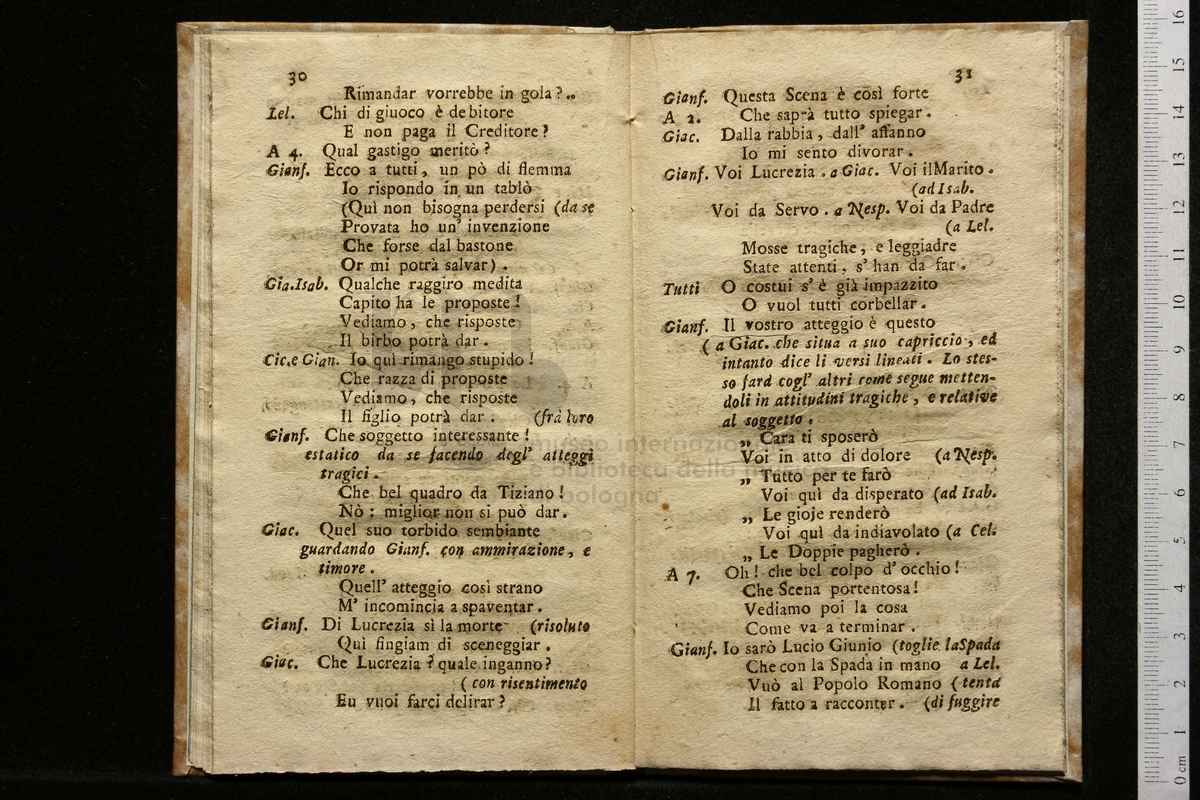 30
Rimandar vorrebbe in gola?..
Lel. Chi di giuoco è debitore
E non paga il Creditore?
A 4. Qual gastigo meritò?
Gianf. Ecco a tutti, un pò di flemma
Io rispondo in un tablò
(Quì non bisogna perdersi (da se
Provata ho un' invenzione
Che forse dal bastone
Or mi potrà salvar).
Gia.Isab. Qualche raggiro medita
Capito ha le proposte!
Vediamo, che risposte
Il birbo potrà dar.
Cic.e Gian. Io quì rimango stupido!
Che razza di proposte
Vediamo, che risposte
Il figlio potrà dar. (frà loro
Gianf. Che soggetto interessante!
estatico da se facendo degl' atteggi
tragici.
Che bel quadro da Tiziano!
Nò: miglior non si può dar.
Giac. Quel suo torbido sembiante
guardando Gianf. con ammirazione, e
timore.
Quell' atteggio così strano
M' incomincia a spaventar.
Gianf. Di Lucrezia sì la morte (risoluto
Quì fingiam di sceneggiar.
Giac. Che Lucrezia? quale inganno?
(con risentimento
Eu vuoi farci delirar?
31
Gianf. Questa Scena è così forte
A 2. Che saprà tutto spiegar.
Giac. Dalla rabbia, dall' affanno
Io mi sento divorar.
Gianf. Voi Lucrezia. a Giac. Voi il Marito.
(ad Isab.
Voi da Servo. a Nesp. Voi da Padre
(a Lel.
Mosse tragiche, e leggiadre
State attenti, s' han da far.
Tutti O costui s' è già impazzito
O vuol tutti corbellar.
Gianf. Il vostro atteggio è questo
(a Giac. che situa a suo capriccio, ed
intanto dice li versi lineati. Lo stes-
so farà cogl' altri come segue metten-
doli in attitudini tragiche, e relative
al soggetto.
„ Cara ti sposerò
Voi in atto di dolore (a Nesp.
„ Tutto per te farò
Voi quì da disperato (ad Isab.
„ Le gioje renderò
Voi quì da indiavolato (a Cel.
„ Le Doppie pagherò.
A 7. Oh! che bel colpo d' occhio!
Che Scena portentosa!
Vediamo poi la cosa
Come va a terminar.
Gianf. Io sarò Lucio Giunio (toglie la Spada
Che con la Spada in mano a Lel.
Vuò al Popolo Romano (tenta
Il fatto a racconter. (di fuggire
museo internazionale
e biblioteca della musica
bologna
16
15
14
13
12
11
10
9
8
7
6
5
4
3
2
1
0 cm